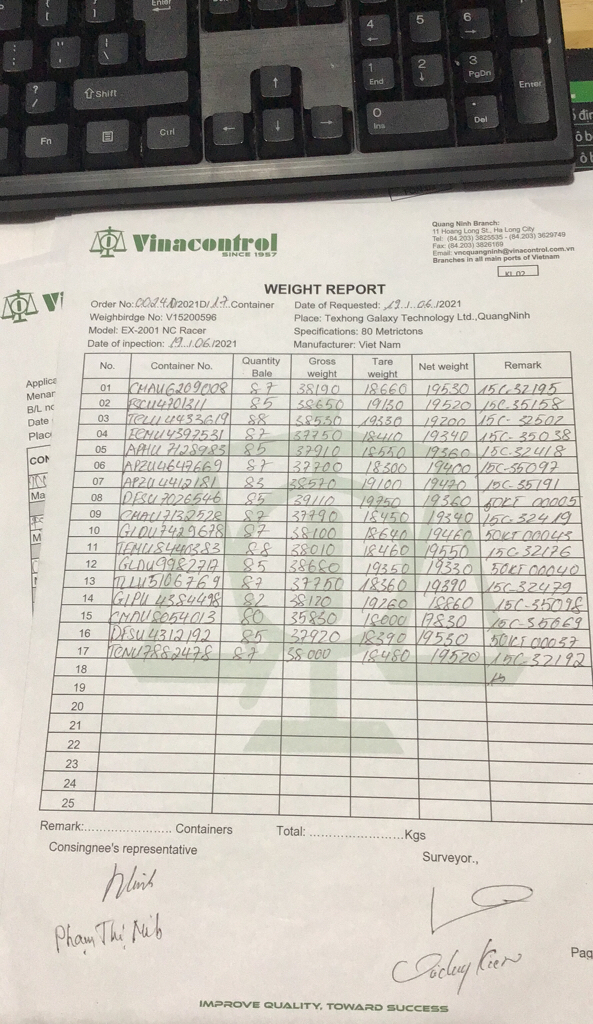 Enter
4
5
6
←
→
1
End
2
↓
3
PgDn
Enter
?
/
⇧Shift
↑
0
Ins
.
Del
Fn
Ctrl
←
↓
→
Vinacontrol
SINCE 1957
Quang Ninh Branch:
11 Hoang Long St., Ha Long City
Tel: (84.203) 3825535 - (84.203) 3629749
Fax: (84.203) 3826169
Email: vncquangninh@vinacontrol.com.vn
Branches in all main ports of Vietnam
KL 02
WEIGHT REPORT
Order No: 0024D/2021D/17 Container Date of Requested: 19/06/2021
Weighbirdge No: V15200596 Place: Texhong Galaxy Technology Ltd.,QuangNinh
Model: EX-2001 NC Racer Specifications: 80 Metrictons
Date of inpection: 19/06/2021 Manufacturer: Viet Nam
No. Container No. Quantity Bale Gross weight Tare weight Net weight Remark
01 CMAU6209008 87 38190 18660 19530 15C-32195
02 85 38650 19130 19520 15C-35158
03 TCLU4433619 88 38530 19330 19200 15C-32502
04 87 37750 18410 19340 15C-35038
05 APHU7128983 85 37910 18550 19360 15C-32418
06 APZU4647669 87 37700 18300 19400 15C-35097
07 APZU4412181 83 38570 19100 19470 15C-35191
08 DFSU7026546 85 39110 19750 19360 50KT 00005
09 CMAU7132528 87 37790 18450 19340 15C-32419
10 GLDU7429678 87 38100 18640 19460 50KT 00043
11 TEMU8440383 88 38010 18460 19550 15C-32176
12 85 38680 19350 19330 50KT 00040
13 TLLU5106769 87 37750 18360 19390 15C-32479
14 GIPU4384498 82 38120 19260 18860 15C-35098
15 CMAU8054013 80 35830 18000 17830 15C-35669
16 DFSU4312192 85 37920 18390 19530 50KT 00037
17 TCNU7882478 87 38000 18480 19520 15C-32192
18
19
20
21
22
23
24
25
Remark:........................ Containers Total: ........................Kgs
Consingnee's representative Surveyor.,
Minh
Phạm Thị Minh
Pag
IMPROVE QUALITY, TOWARD SUCCESS